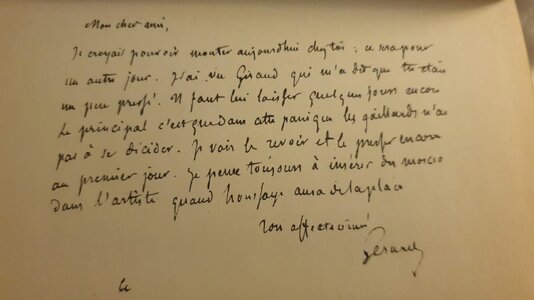 Mon cher ami,
Je croyais pouvoir monter aujourdhui chez toi : ce sera pour
un autre jour. J'ai vu Giraud qui m'a dit que tu étais
un peu pressé. Il faut lui laisser quelques jours encore
Le principal c'est que dans cette panique les gaillards n'aient
pas à se décider. Je vais le revoir et le presser encore
au premier jour. Je pense toujours à insérer du morceau
dans l'artiste quand houssaye aura de la place
Ton affectionné
Gérard